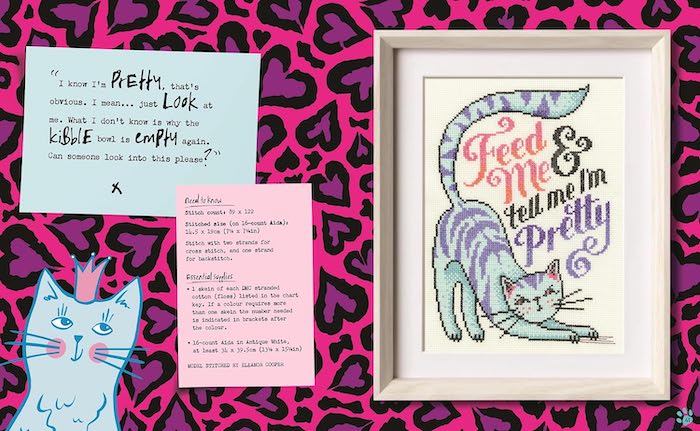 “I know I'm Pretty, that's
obvious. I mean... just Look at
me. What I don't know is why the
kibble bowl is empty again.
Can someone look into this please?”
x
Need to know
Stitch count: 89 x 122
Stitched size (on 16-count Aida):
14.5 x 19cm (7¼ x 7¼in)
Stitch with two strands for
cross stitch, and one strand
for backstitch.
Essential supplies
• 1 skein of each DMC stranded
cotton (floss) listed in the chart
key. If a colour requires more
than one skein the number needed
is indicated in brackets after
the colour.
• 16-count Aida in Antique White,
at least 34 x 39.5cm (13¼ x 15¼in)
MODEL STITCHED BY ELEANOR COOPER
Feed
Me &
tell me I'm
Pretty